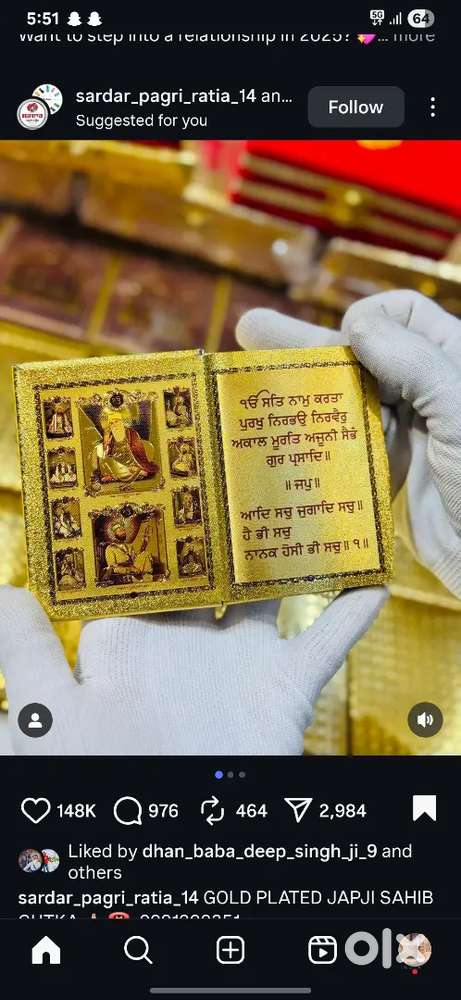 5:51
5G
64
Want to step into a relationship in 2025? 💘... more
sardar_pagri_ratia_14 an...
Suggested for you
Follow
ੴ ਸਤਿ ਨਾਮੁ ਕਰਤਾ
ਪੁਰਖੁ ਨਿਰਭਉ ਨਿਰਵੈਰੁ
ਅਕਾਲ ਮੂਰਤਿ ਅਜੂਨੀ ਸੈਭੰ
ਗੁਰ ਪ੍ਰਸਾਦਿ॥
॥ ਜਪੁ॥
ਆਦਿ ਸਚੁ ਜੁਗਾਦਿ ਸਚੁ॥
ਹੈ ਭੀ ਸਚੁ
ਨਾਨਕ ਹੋਸੀ ਭੀ ਸਚੁ॥ ੧॥
148K
976
464
2,984
Liked by dhan_baba_deep_singh_ji_9 and
others
sardar_pagri_ratia_14 GOLD PLATED JAPJI SAHIB
GUTKA
olx